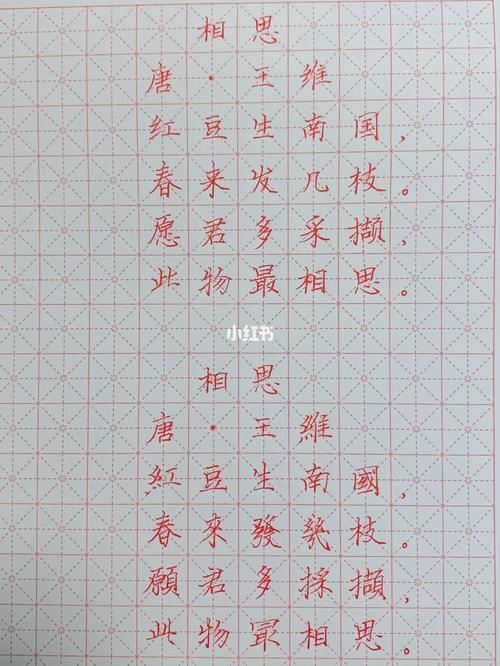 相思
唐·王维
红豆生南国，
春来发几枝。
愿君多采撷，
此物最相思。
小红书
相思
唐·王維
紅豆生南國，
春來發幾枝。
願君多採擷，
此物冣相思。